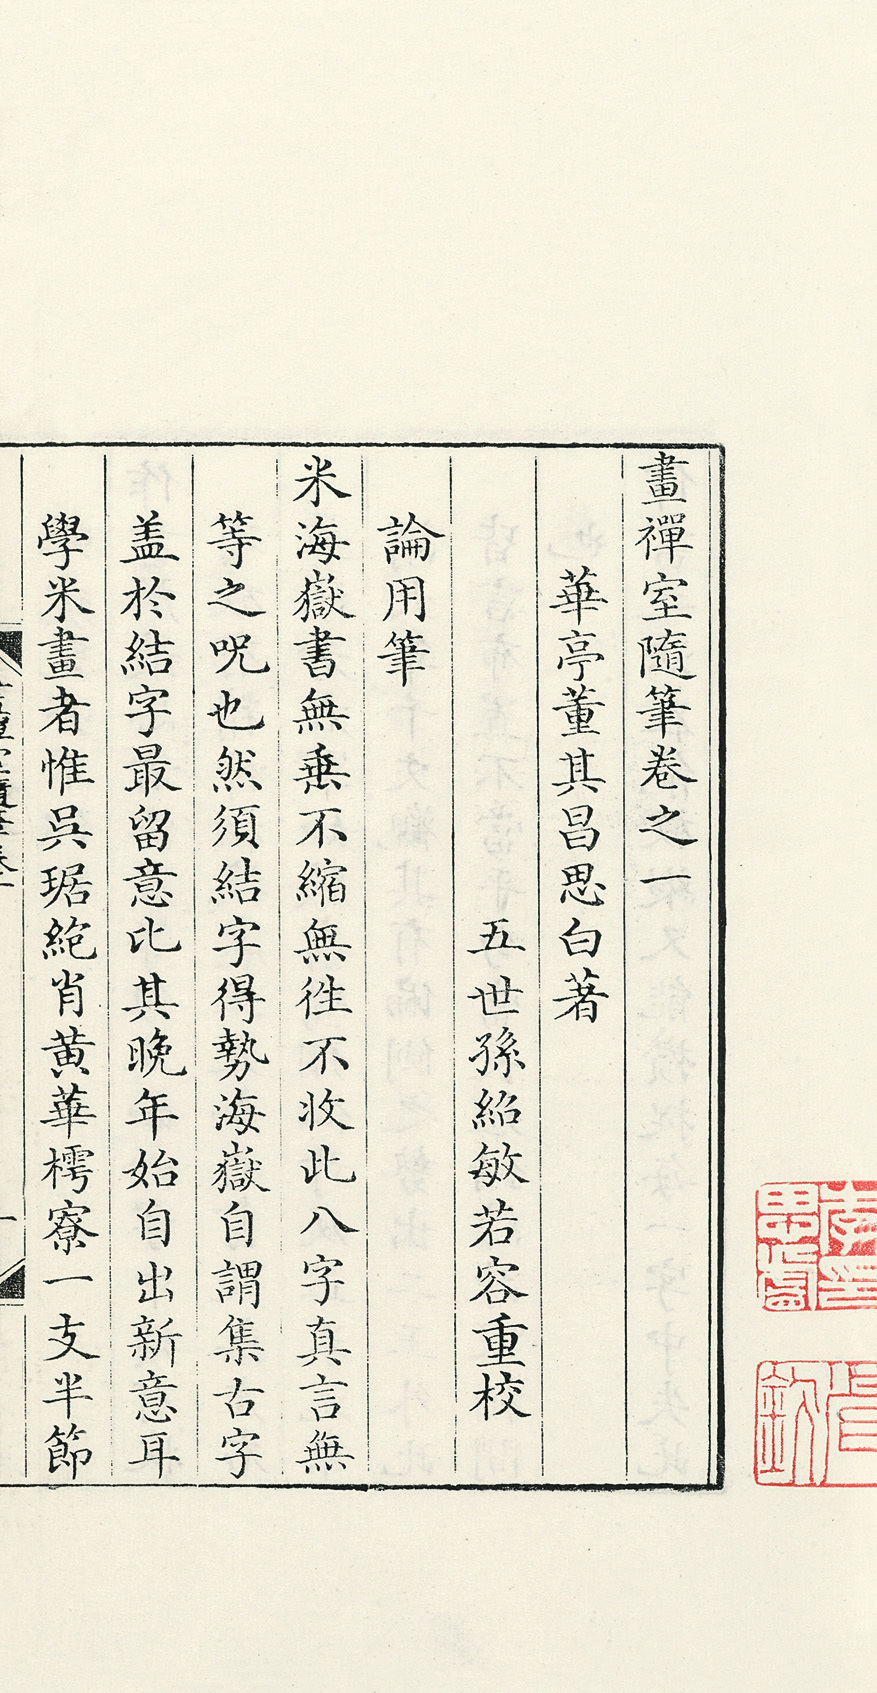 畫禪室隨筆卷之一
華亭董其昌思白著
五世孫紹敏若容重校
論用筆
米海嶽書無垂不縮無徃不收此八字真言無
等之呪也然須結字得勢海嶽自謂集古字
盖於結字最留意比其晩年始自出新意耳
學米畫者惟吳琚絶肖黄華樗寮一支半節